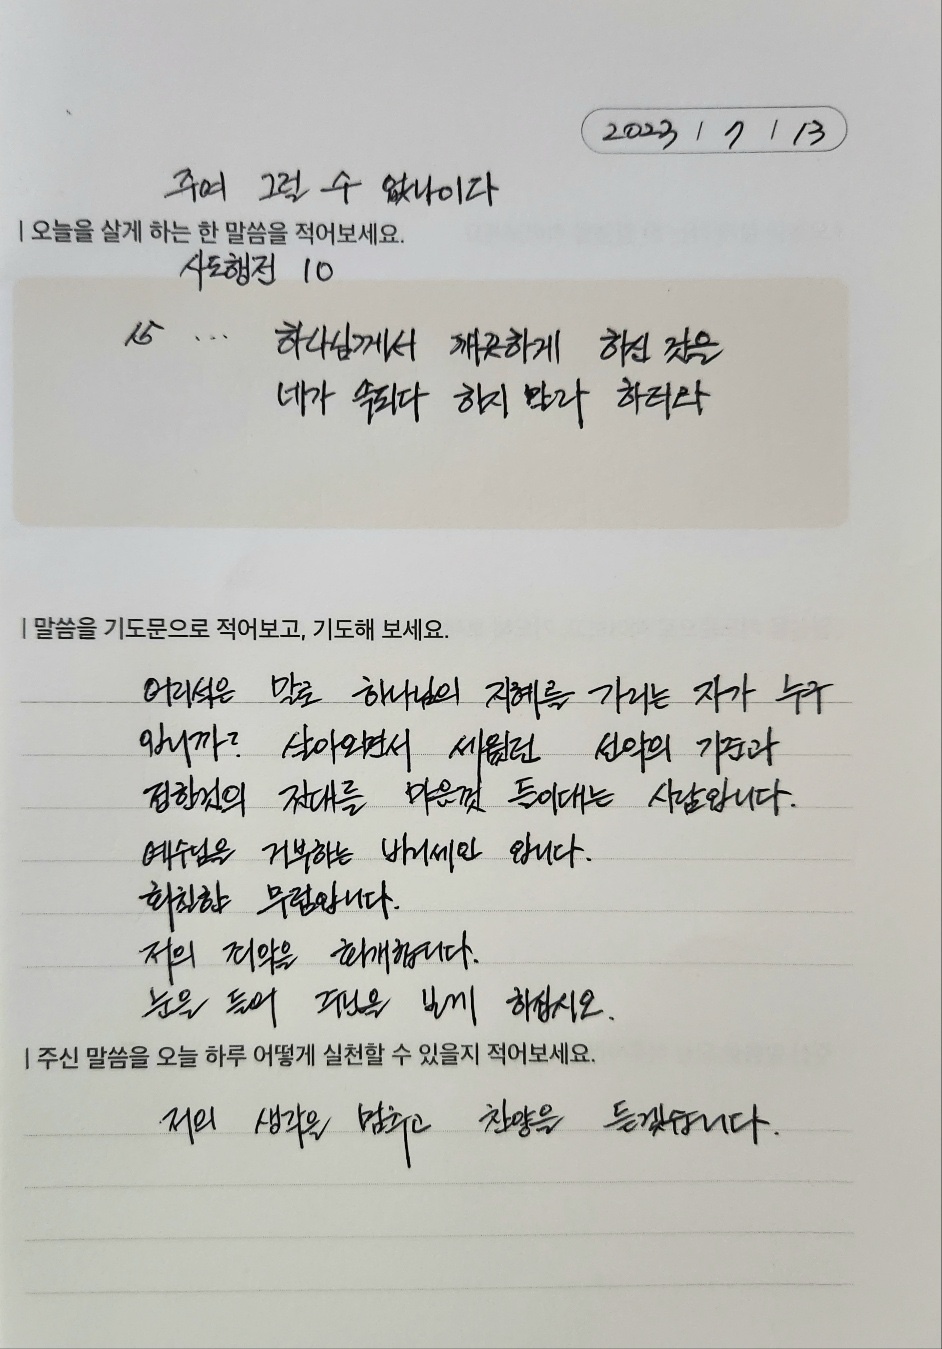 2023 / 7 / 13
주여 그럴 수 없나이다
| 오늘을 살게 하는 한 말씀을 적어보세요.
사도행전 10
15 ... 하나님께서 깨끗하게 하신 것을
네가 속되다 하지 말라 하더라
| 말씀을 기도문으로 적어보고, 기도해 보세요.
어리석은 말로 하나님의 지혜를 가리는 자가 누구
입니까? 살아오면서 세웠던 선악의 기준과
정한것의 잣대를 마음껏 들이대는 사람입니다.
예수님을 거부하는 바리세인 입니다.
회칠한 무덤입니다.
저의 죄악을 회개합니다.
눈을 들어 주님을 보게 하십시오.
| 주신 말씀을 오늘 하루 어떻게 실천할 수 있을지 적어보세요.
저의 생각을 멈추고 찬양을 듣겠습니다.